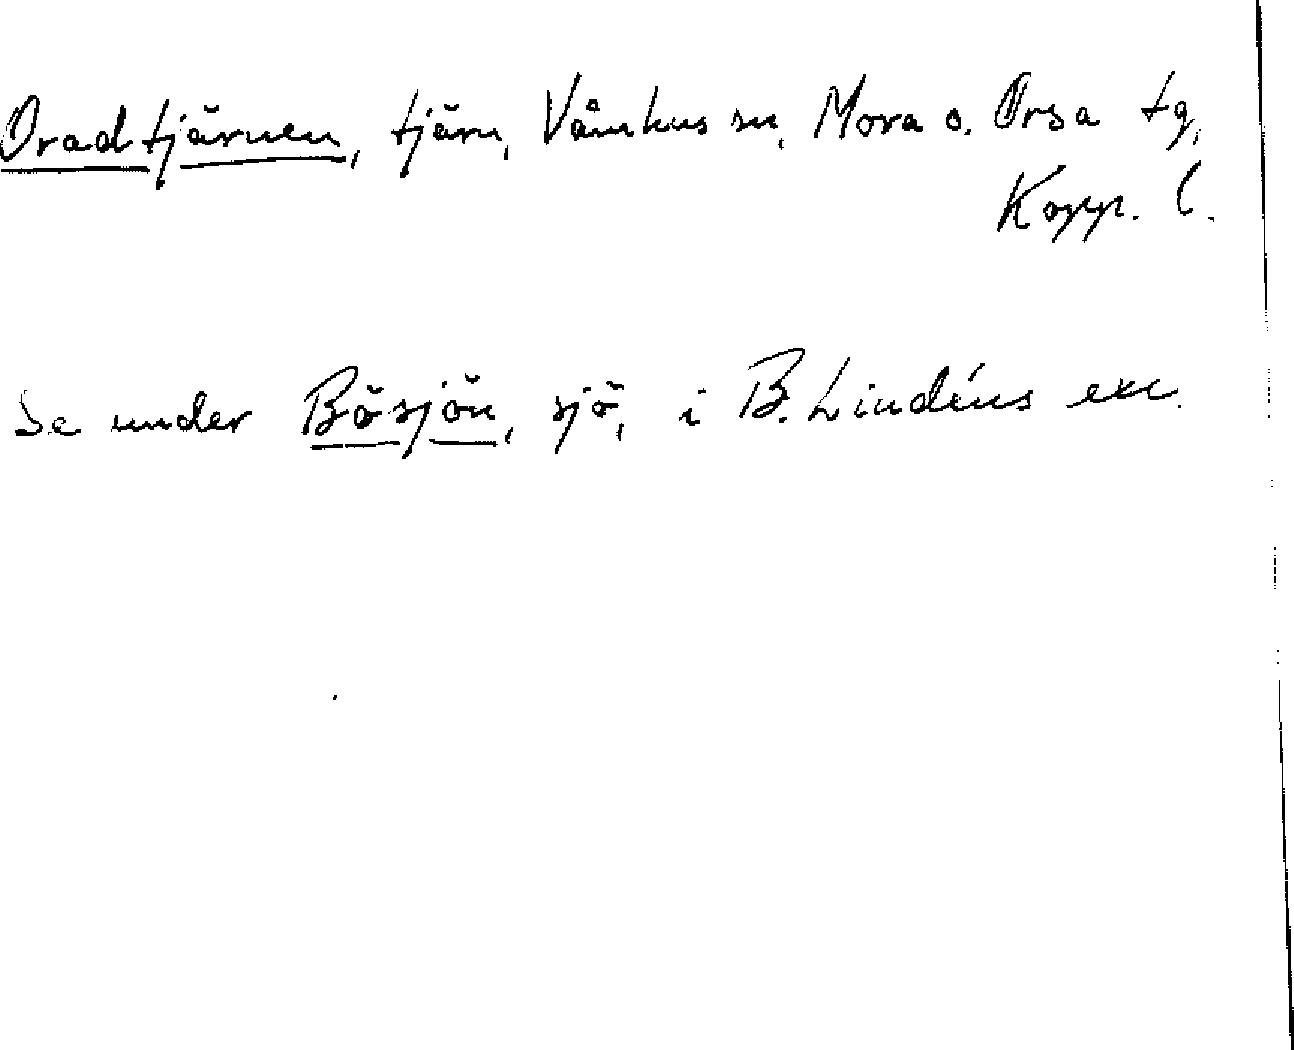 Oradtjärnen, tjärn, Våmhus sn, Mora o. Orsa tg,
Kopp. l.
Se under Bösjön, sjö, i B. Lindéns exc.